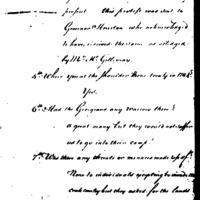 present this protest was sent to
Governor Houston who acknowledged
to have received the same as alleged
by Mr. McGillivray.
5th Where you at the Shoulder Bone treaty in 1786?
Yes.
6th Had the Georgians any warriors there?
A great many but they would not suffer
us to go into their camp.
7th Was there any threats or menaces made use of?
None to individuals
country but they asked for the lands